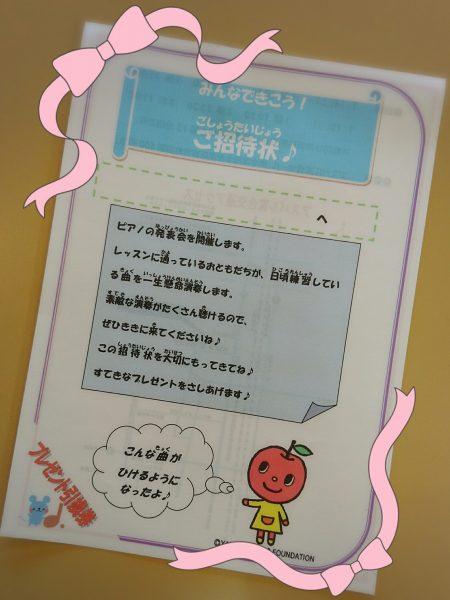 みんなできこう！
ごしょうたいじょう
ご招待状♪
へ
ピアノの発表会を開催します。
レッスンに通っているおともだちが、日頃練習してい
る曲を一生懸命演奏します。
素敵な演奏がたくさん聴けるので、
ぜひききに来てくださいね♪
この招待状を大切にもってきてね♪
すてきなプレゼントをさしあげます♪
こんな曲が
ひけるように
なったよ♪
プレゼント引換券
FOUNDATION